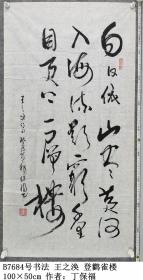 白日依山尽黄河
入海流欲穷千里
目更上一层楼
B7684号书法 王之涣 登鹳雀楼
100×50cm 作者：丁保福